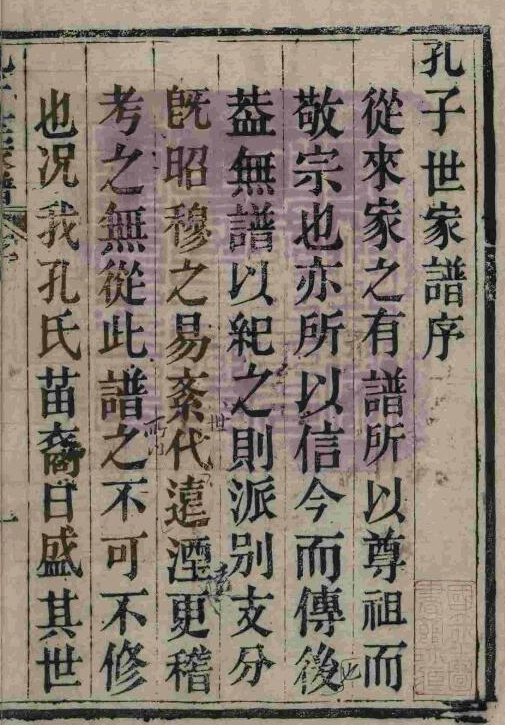 孔子世家譜序
從來家之有譜所以尊祖而
敬宗也亦所以信今而傳後
葢無譜以紀之則派別支分
旣昭穆之易紊代遠湮更稽
考之無從此譜之不可不修
也况我孔氏苗裔日盛其世